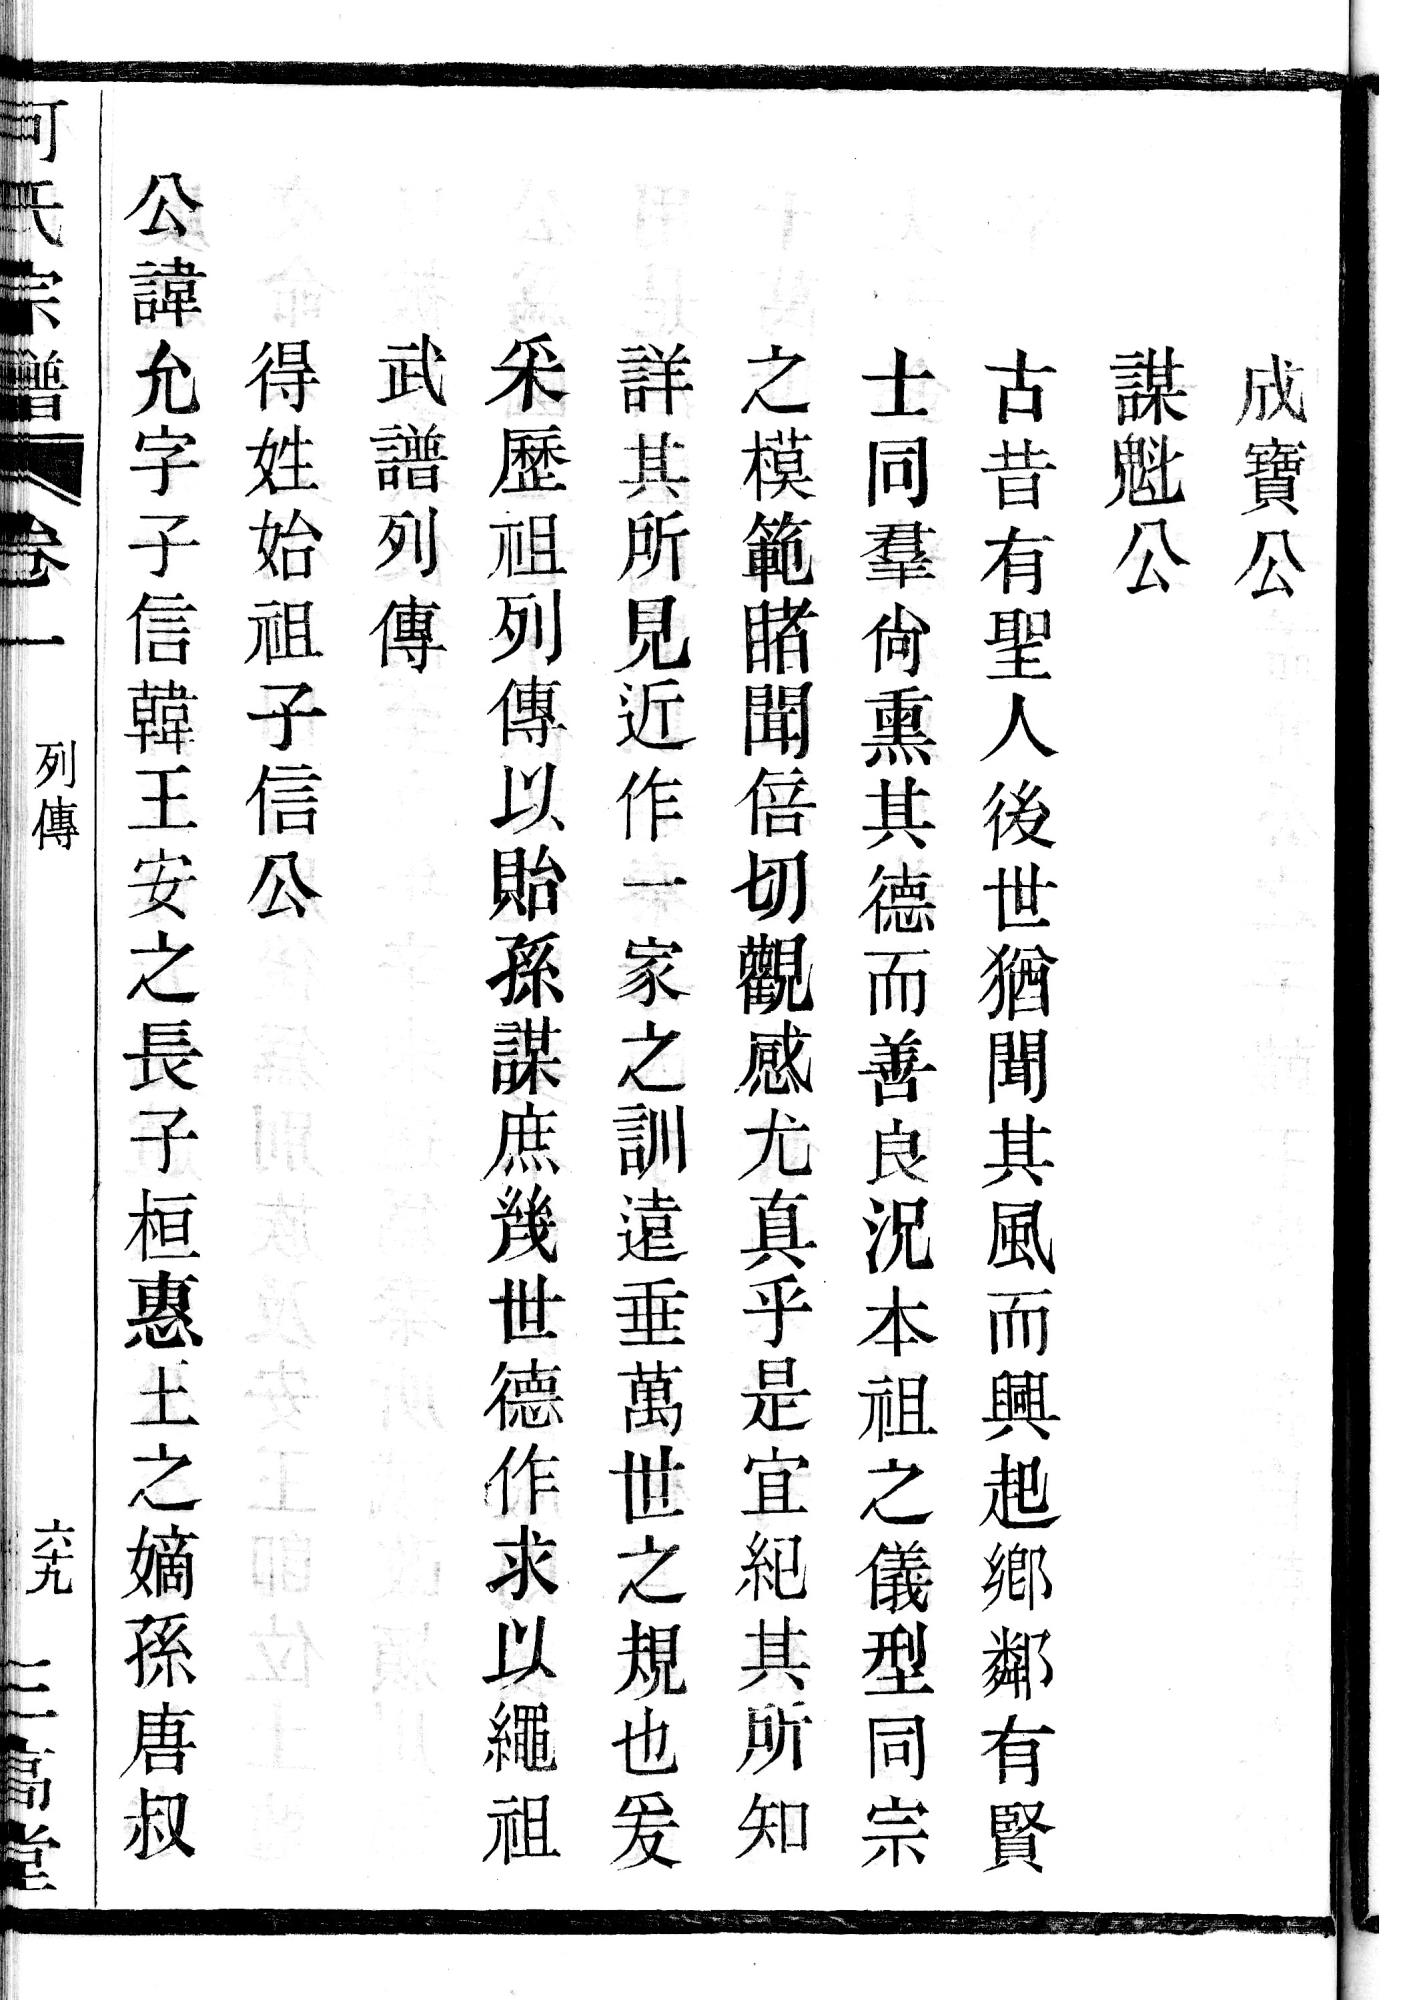 成寶公
謀魁公
古昔有聖人後世猶聞其風而興起鄉鄰有賢
士同羣尙熏其德而善良況本祖之儀型同宗
之模範睹聞倍切觀感尤真乎是宜紀其所知
詳其所見近作一家之訓遠垂萬世之規也爰
釆歷祖列傳以貽孫謀庶幾世德作求以繩祖
武譜列傳
得姓始祖子信公
公諱允字子信韓王安之長子桓惠王之嫡孫唐叔
何氏宗譜 卷一 列傳 六十九 三高堂